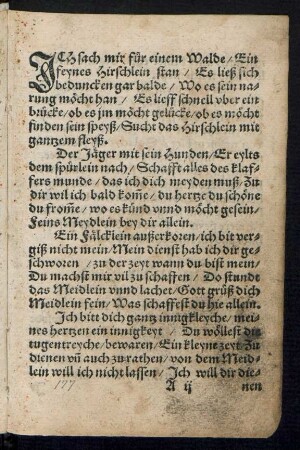 ICh sach mir für einem Walde/Ein
feynes Hirschlein stan/Es ließ sich
beduncken gar balde/Wo es sein na-
rung möcht han/Es lieff schnell vber ein
brücke/ob es jm möcht gelücke/ob es möcht
finden sein speyß/Sucht das Hirschlein mit
gantzem fleyß.
Der Jäger mit sein Hunden/Er eylts
dem spürlein nach/Schafft alles des klaf-
fers munde/das ich dich meyden muß/Zu
dir wil ich bald kom̃e/du hertze du schöne
du from̃e/wo es künd vnnd möcht gesein/
Feins Meydlein bey dir allein.
Ein Fälcklein außerkoren/ich bit ver-
giß nicht mein/Mein dienst hab ich dir ge-
schworen/zu der zeyt wann du bist mein/
Du machst mir vil zu schaffen/Do stundt
das Meidlein vnnd lachet/Gott grüß dich
Meidlein fein/Was schaffest du hie allein.
Ich bitt dich gantz innigkleyche/mei-
nes hertzen ein innigkeyt/Du wöllest die
tugentreyche/bewaren/Ein kleyne zeyt/Zu
dienen vñ auch zu rathen/von dem Meid-
lein will ich nicht lassen/Ich will dir die-
A ij nen
177